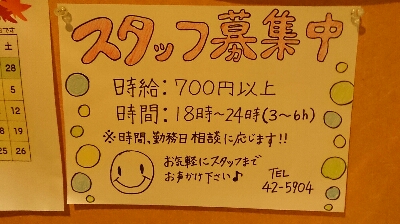 スタッフ募集中
時給:700円以上
時間:18時～24時(3～6h)
※時間、勤務日相談に応じます!!
お気軽にスタッフまで
お声かけ下さい♪
TEL
42-5904
土
28
5
12
19
26